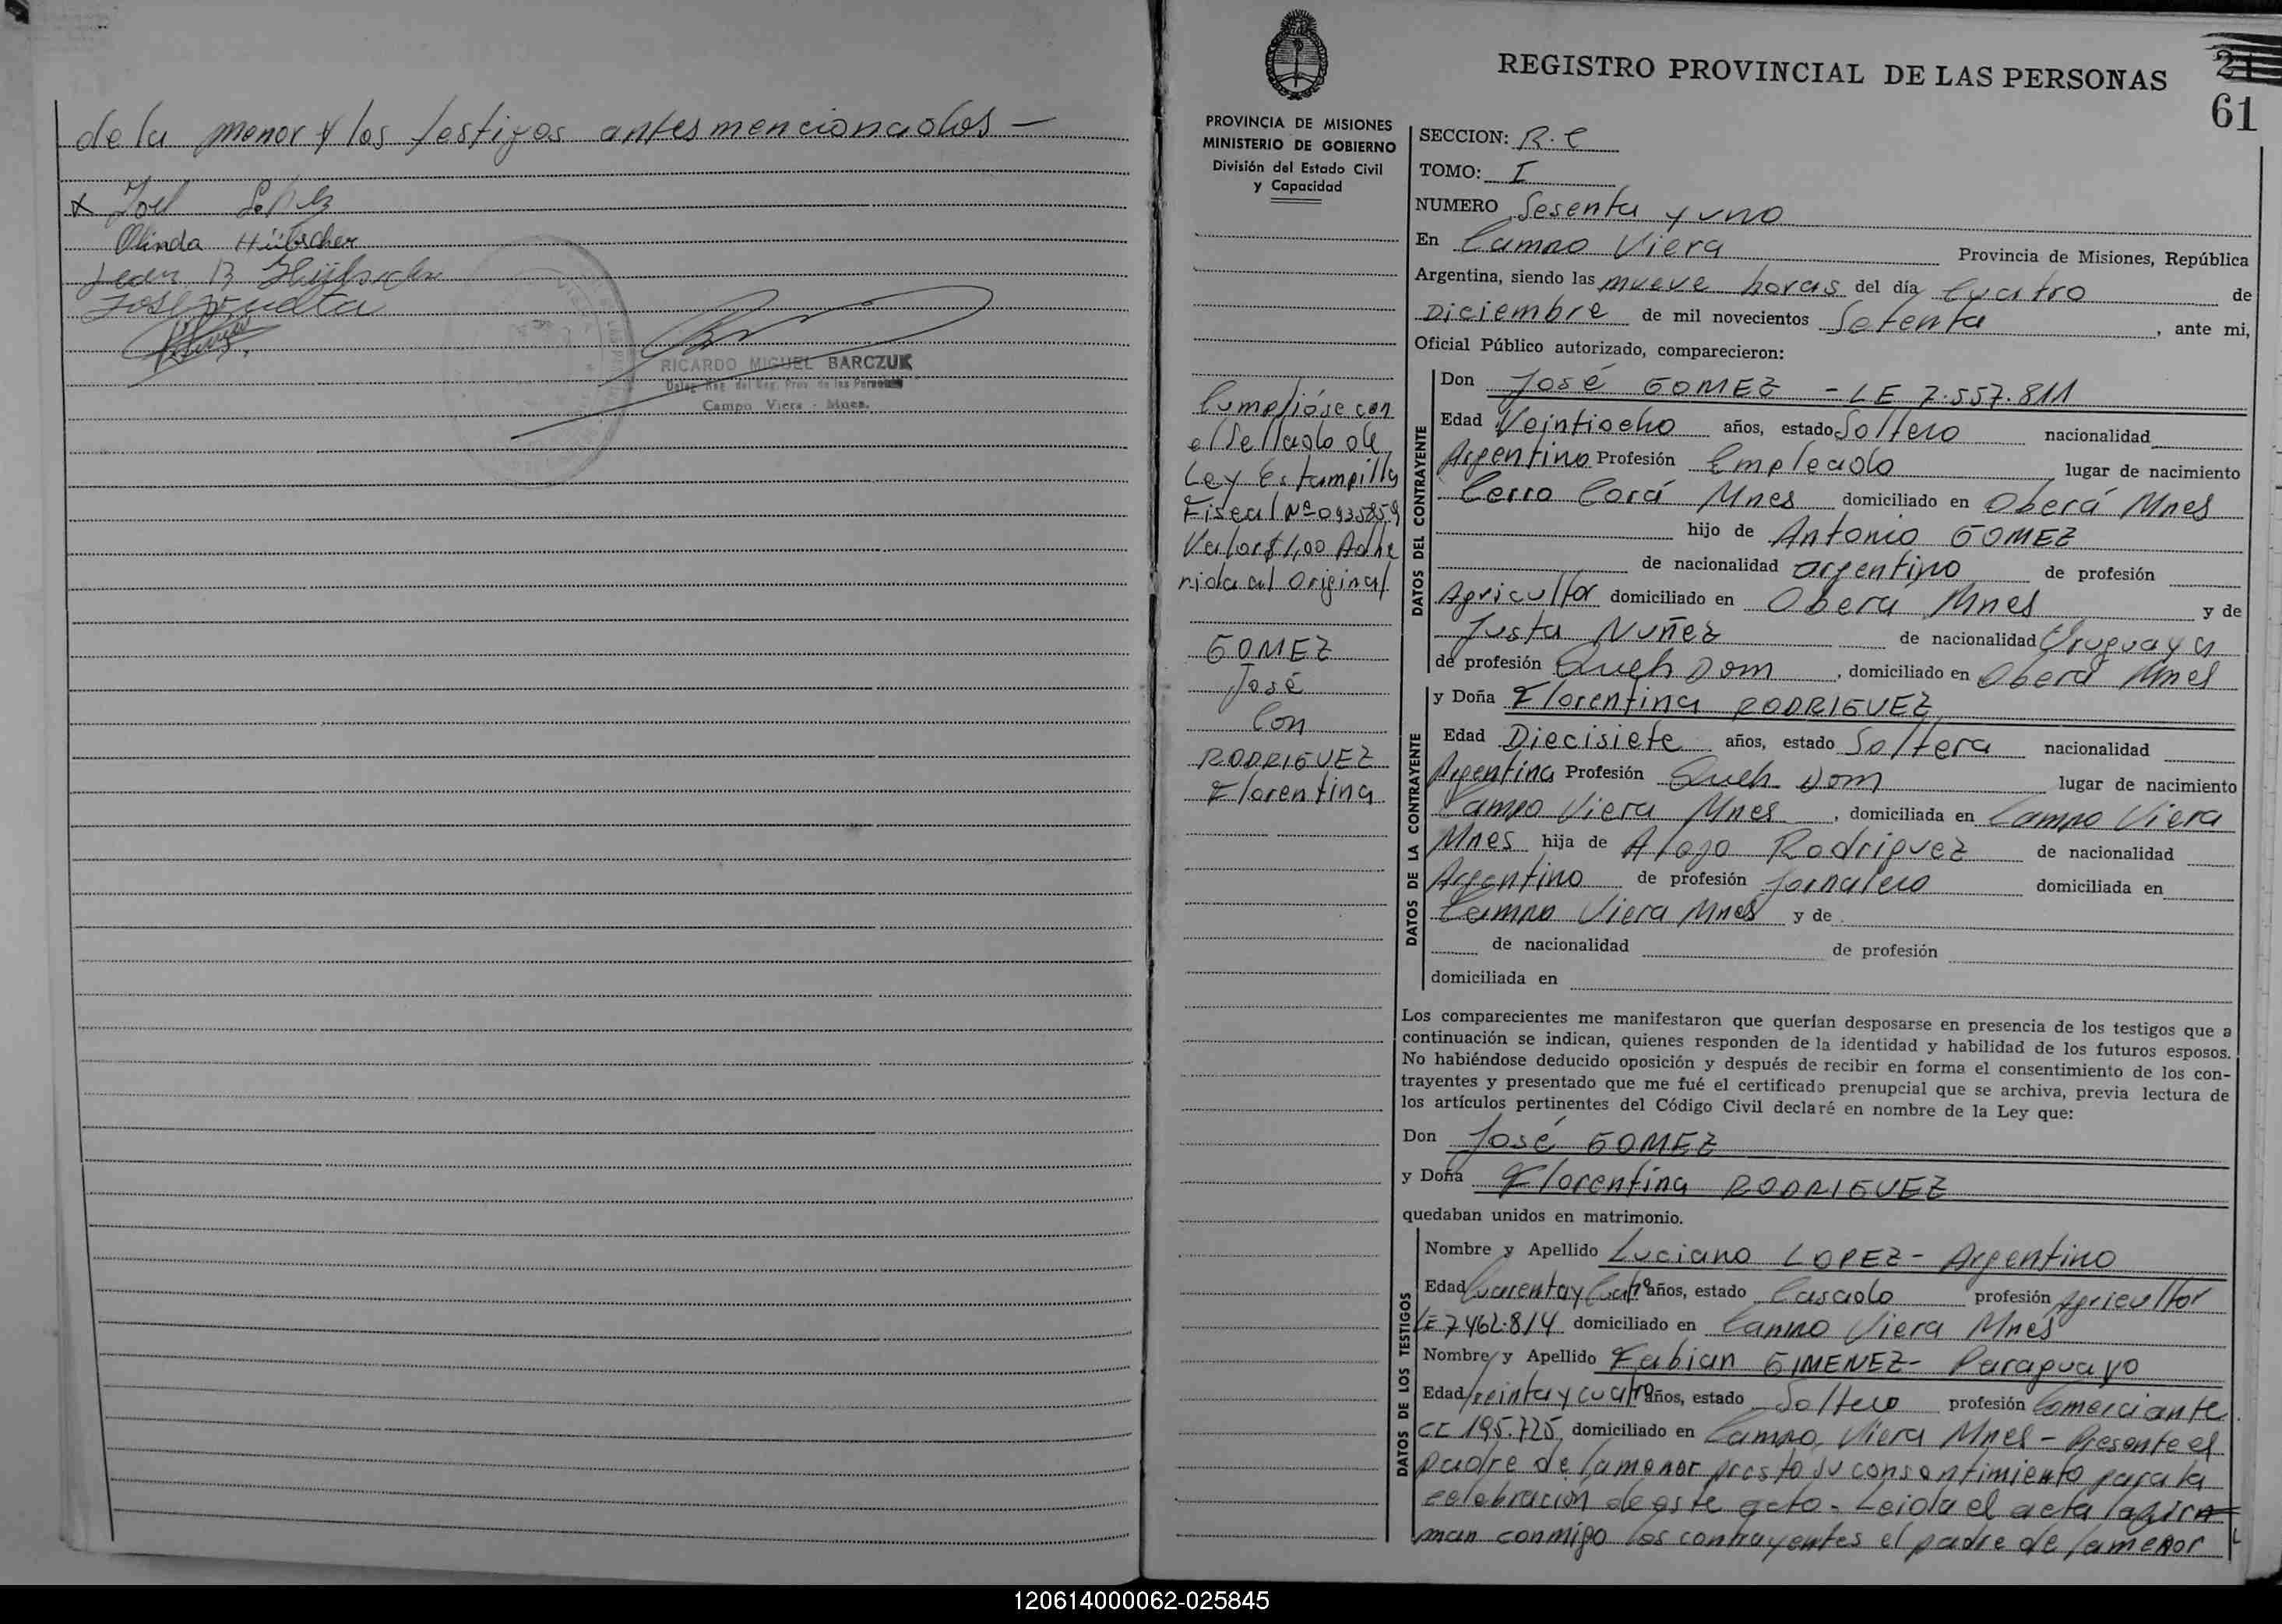 de la menor y los testigos antes mencionados —
x Joel
Olinda Hübscher
RICARDO MIGUEL BARCZUK
Campo Viera - Mnes.
REGISTRO PROVINCIAL DE LAS PERSONAS
21
61
PROVINCIA DE MISIONES
MINISTERIO DE GOBIERNO
División del Estado Civil
y Capacidad
Cumplióse con
el Sellado de
Ley Estampilla
Fiscal Nº 0935859
Valor $ 1,00 Adhe
rida al Original
GOMEZ
José
Con
RODRIGUEZ
Florentina
SECCION: R.C
TOMO: I
NUMERO Sesenta y uno
En Campo Viera Provincia de Misiones, República
Argentina, siendo las nueve horas del día Cuatro de
Diciembre de mil novecientos Setenta, ante mi,
Oficial Público autorizado, comparecieron:
DATOS DEL CONTRAYENTE
Don José GOMEZ - LE 7.557.811
Edad Veintiocho años, estado Soltero nacionalidad
Argentino Profesión Empleado lugar de nacimiento
Cerro Corá Mnes domiciliado en Oberá Mnes
hijo de Antonio GOMEZ
de nacionalidad argentino de profesión
Agricultor domiciliado en Oberá Mnes y de
Justa Nuñez de nacionalidad Uruguaya
de profesión Queh Dom, domiciliado en Oberá Mnes
DATOS DE LA CONTRAYENTE
y Doña Florentina RODRIGUEZ
Edad Diecisiete años, estado Soltera nacionalidad
Argentina Profesión Queh Dom lugar de nacimiento
Campo Viera Mnes, domiciliada en Campo Viera
Mnes hija de Alojo Rodriguez de nacionalidad
Argentino de profesión Jornalero domiciliada en
Campo Viera Mnes y de
de nacionalidad de profesión
domiciliada en
Los comparecientes me manifestaron que querían desposarse en presencia de los testigos que a
continuación se indican, quienes responden de la identidad y habilidad de los futuros esposos.
No habiéndose deducido oposición y después de recibir en forma el consentimiento de los con-
trayentes y presentado que me fué el certificado prenupcial que se archiva, previa lectura de
los artículos pertinentes del Código Civil declaré en nombre de la Ley que:
Don José GOMEZ
y Doña Florentina RODRIGUEZ
quedaban unidos en matrimonio.
DATOS DE LOS TESTIGOS
Nombre y Apellido Luciano LOPEZ - Argentino
Edad Cuarenta y Catro años, estado Casado profesión Agricultor
LE 7462.814 domiciliado en Campo Viera Mnes
Nombre y Apellido Fabian GIMENEZ - Paraguayo
Edad treinta y cuatro años, estado Soltero profesión Comerciante
CI 195.725, domiciliado en Campo Viera Mnes - Presente el
padre de la menor presto su consentimiento para la
celebracion de este acto - Leida el acta la fir
man conmigo los contrayentes el padre de la menor
120614000062-025845